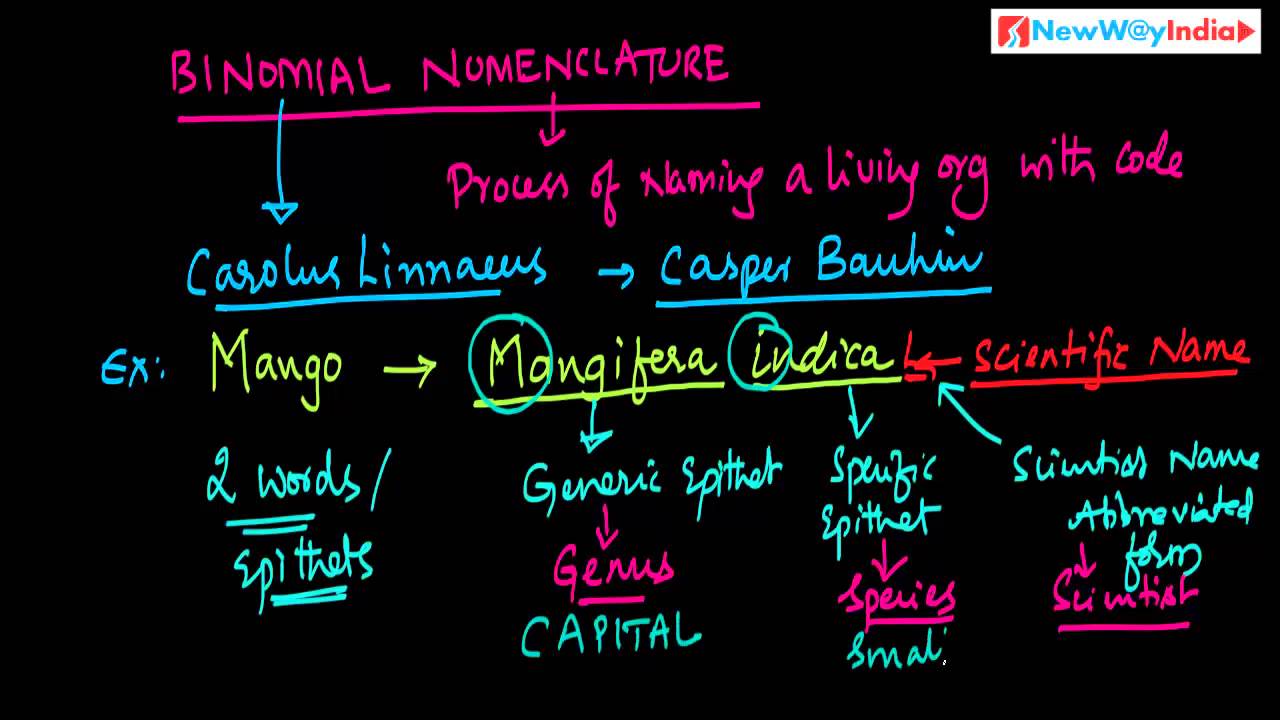 NewW@yIndia
BINOMIAL NOMENCLATURE
Process of Naming a living org with code
Carolus Linnaeus → Casper Bauhin
Ex: Mango → Mangifera indica L. ← Scientific Name
2 words / Generic Epithet Specific Scientist Name
Epithets Epithet Abbreviated
form
Genus Species Scientist
CAPITAL Smal